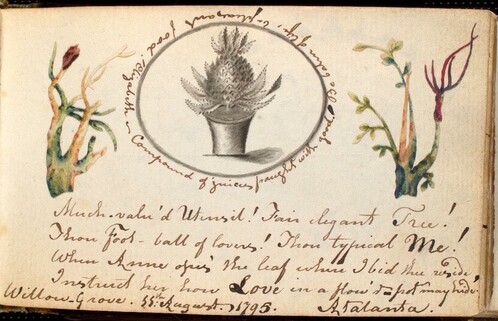 Compound of juices fraught with good! Oh! balm of life! & pleasant food Elizabeth
Much-valu'd Utensil! Fair elegant Tree!
Thou Foot-ball of lovers! Thou typical Me!
When Anne ope's the leaf where I bid thee reside
Instruct her how Love in a flow'r-pot may hide!
Willow-Grove. August. 1795. Atalanta.